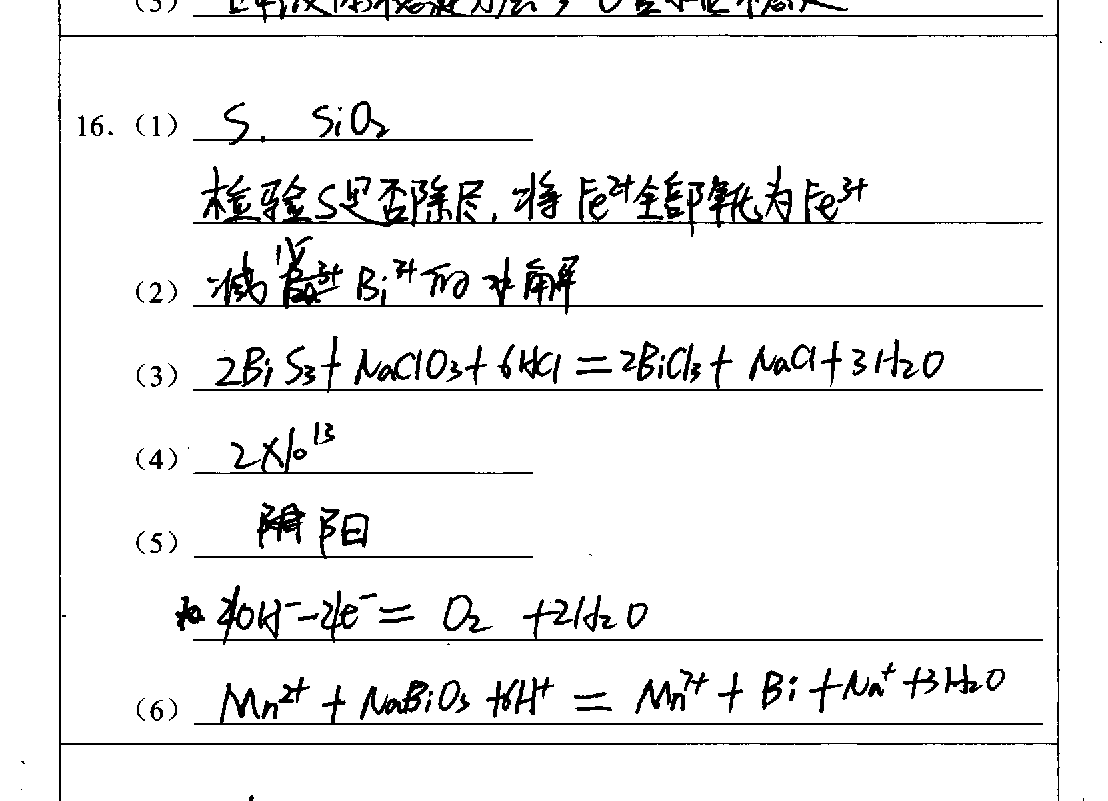 16.（1） S. SiO₂
检验S是否除尽，将Fe²⁺全部氧化为Fe³⁺
（2） 减 Bi³⁺的水解
（3） 2BiS₃+NaClO₃+6HCl=2BiCl₃+NaCl+3H₂O
（4） 2×10¹³
（5） 阴 阳
4OH⁻-4e⁻= O₂ +2H₂O
（6） Mn²⁺ + NaBiO₃ +6H⁺ = Mn⁷⁺ + Bi +Na⁺ +3H₂O